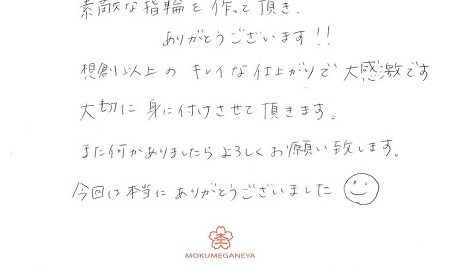 素敵な指輪を作って頂き、
ありがとうございます!!
想創以上のキレイな仕上がりで大感激です
大切に身に付けさせて頂きます。
また何かありましたらよろしくお願い致します。
今回は本当にありがとうございました
杢
MOKUMEGANEYA